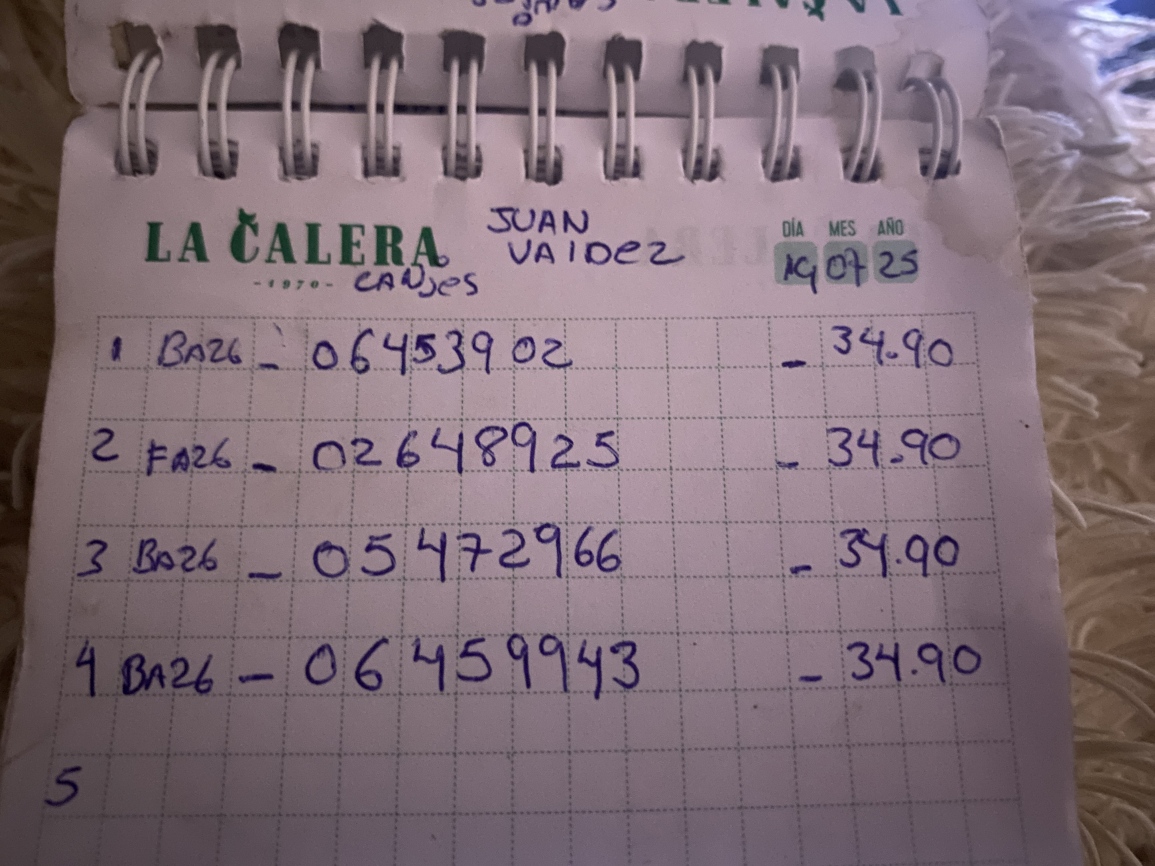 LA CALERA
JUAN VAlDEZ
DÍA MES AÑO
-1970-
CANJES
19 07 25
1 BA26 - 06453902 - 34.90
2 FA26 - 02648925 - 34.90
3 BA26 - 05472966 - 34.90
4 BA26 - 06459943 - 34.90
5